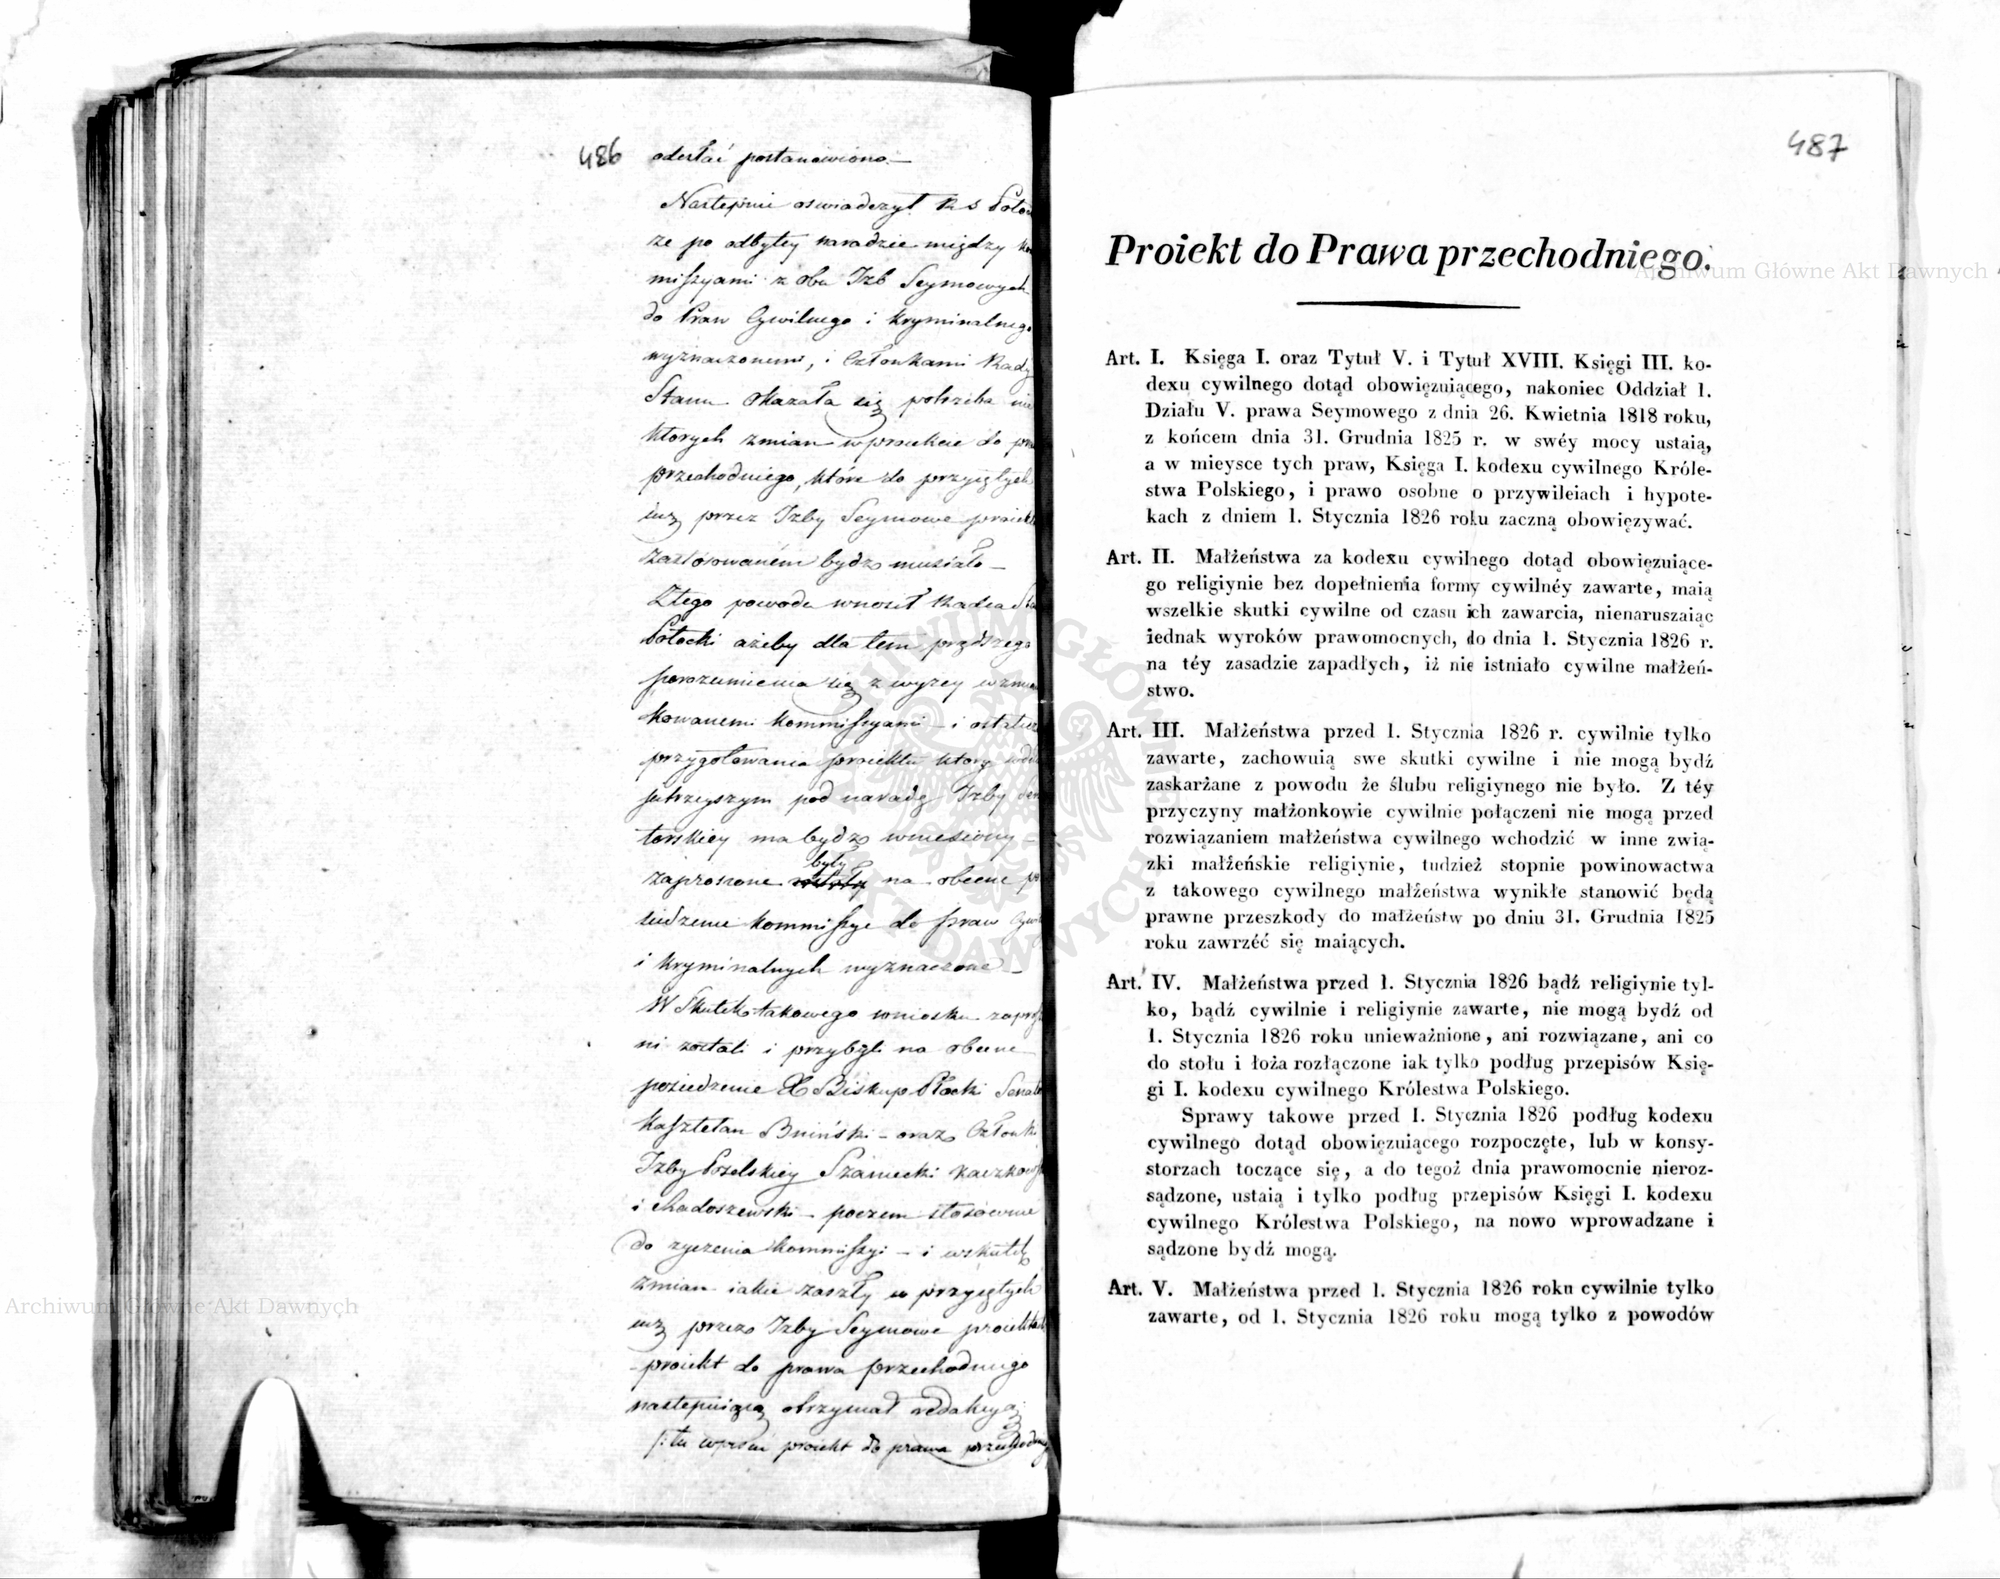 486
odesłać postanowiono.—
Następnie oswiadczył R S Potoc
ze po odbytey naradzie między ko
missyami z obu Izb Seymowych
do Praw Cywilnego i Kryminalnego
wyznaczonemi, i Członkami Rady
Stanu okazała się potrzeba nie
ktorych zmian w proiekcie do pra
przechodniego, które do przyiętych
iuż przez Izby Seymowe proiekt
zastosowanem bydź musiało —
Z tego powodu wnosił Radca Sta
Potocki ażeby dla tem prędszego
porozumienia się z wyżey wzmian
kowanemi Kommissyami — i ostatecz
przygotowania proiektu ktory
jutrzeyszym pod naradę Izby Sena
torskiey ma bydź wniesiony —
były
zaproszone na obecne po
siedzenie Kommissye do praw Cywil
i Kryminalnych wyznaczone —
W Skutek takowego wniosku zaprosze
ni zostali i przybyli na obecne
posiedzenie X Biskup Płocki Senator
Kasztelan Bniński — oraz Członki
Izby Poselskiey Szaniecki Kaczkowski
i Radoszewski — poczem stosownie
do zyczenia Kommissyi — i wskutek
zmian iakie zaszły w przyiętych
iuż przez Izby Seymowe proiektach
proiekt do prawa przechodniego
następuiącą otrzymał redakcyą
/: tu wpisać proiekt do prawa przechodniego
487
Proiekt do Prawa przechodniego.
Art. I. Księga I. oraz Tytuł V. i Tytuł XVIII. Księgi III. ko-
dexu cywilnego dotąd obowięzuiącego, nakoniec Oddział 1.
Działu V. prawa Seymowego z dnia 26. Kwietnia 1818 roku,
z końcem dnia 31. Grudnia 1825 r. w swéy mocy ustaią,
a w mieysce tych praw, Księga I. kodexu cywilnego Króle-
stwa Polskiego, i prawo osobne o przywileiach i hypote-
kach z dniem 1. Stycznia 1826 roku zaczną obowięzywać.
Art. II. Małżeństwa za kodexu cywilnego dotąd obowięzuiące-
go religiynie bez dopełnienia formy cywilnéy zawarte, maią
wszelkie skutki cywilne od czasu ich zawarcia, nienaruszaiąc
iednak wyroków prawomocnych, do dnia 1. Stycznia 1826 r.
na téy zasadzie zapadłych, iż nie istniało cywilne małżeń-
stwo.
Art. III. Małżeństwa przed 1. Stycznia 1826 r. cywilnie tylko
zawarte, zachowuią swe skutki cywilne i nie mogą bydź
zaskarżane z powodu że ślubu religiynego nie było. Z téy
przyczyny małżonkowie cywilnie połączeni nie mogą przed
rozwiązaniem małżeństwa cywilnego wchodzić w inne zwią-
zki małżeńskie religiynie, tudzież stopnie powinowactwa
z takowego cywilnego małżeństwa wynikłe stanowić będą
prawne przeszkody do małżeństw po dniu 31. Grudnia 1825
roku zawrzéć się maiących.
Art. IV. Małżeństwa przed 1. Stycznia 1826 bądź religiynie tyl-
ko, bądź cywilnie i religiynie zawarte, nie mogą bydź od
1. Stycznia 1826 roku unieważnione, ani rozwiązane, ani co
do stołu i łoża rozłączone iak tylko podług przepisów Księ-
gi I. kodexu cywilnego Królestwa Polskiego.
Sprawy takowe przed 1. Stycznia 1826 podług kodexu
cywilnego dotąd obowięzuiącego rozpoczęte, lub w konsy-
storzach toczące się, a do tegoż dnia prawomocnie nieroz-
sądzone, ustaią i tylko podług przepisów Księgi I. kodexu
cywilnego Królestwa Polskiego, na nowo wprowadzane i
sądzone bydź mogą.
Art. V. Małżeństwa przed 1. Stycznia 1826 roku cywilnie tylko
zawarte, od 1. Stycznia 1826 roku mogą tylko z powodów
Archiwum Główne Akt Dawnych
Archiwum Główne Akt Dawnych
ARCHIWUM GŁÓWNE AKT DAWNYCH